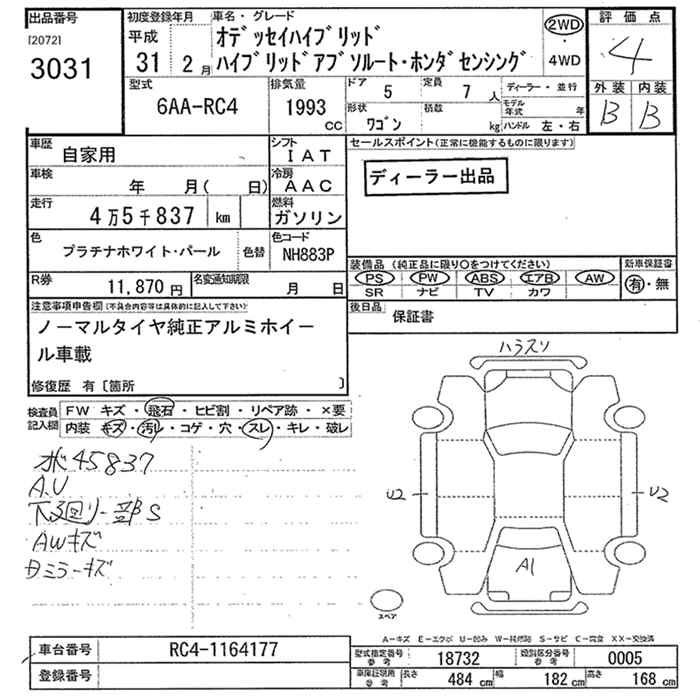 出品番号
[2072]
3031
初度登録年月
平成
31 2月
車名・グレード
オデッセイハイブリッド
ハイブリッドアブソルート・ホンダセンシング
2WD
・
4WD
評価点
4
外装 内装
B B
型式
6AA-RC4
排気量
1993
CC
ドア 5
定員 7 人
形状 ワゴン
積数 kg
ディーラー・並行
モデル年式 年
ハンドル 左・右
車歴 自家用
シフト IAT
車検 年 月( 日)
冷房 AAC
走行 4万5千837 km
燃料 ガソリン
色 プラチナホワイト・パール 色替
色コード NH883P
R券 11,870円
名変通知期限 月 日
セールスポイント(正常に機能するものに限ります)
ディーラー出品
装備品(純正品に限り○をつけてください)
PS PW ABS エアB AW
SR ナビ TV カワ
新車保証書
有・無
後日品 保証書
注意事項申告欄(不具合内容等は具体的に記入して下さい)
ノーマルタイヤ純正アルミホイー
ル車載
修復歴 有〔箇所 〕
検査員記入欄
FW キズ・飛石・ヒビ割・リペア跡・×要
内装 キズ・汚レ・コゲ・穴・スレ・キレ・破レ
ボ45837
A.U
下廻り一部S
AWキズ
日ミラーキズ
ハラスリ
U2
U2
A1
スペア
A-キズ E-エクボ U-凹み W-補修跡 S-サビ C-腐食 XX-交換済
車台番号 RC4-1164177
登録番号
型式指定番号 参考 18732
類別区分番号 参考 0005
車庫証明用 参考
長さ 484cm 幅 182cm 高さ 168cm